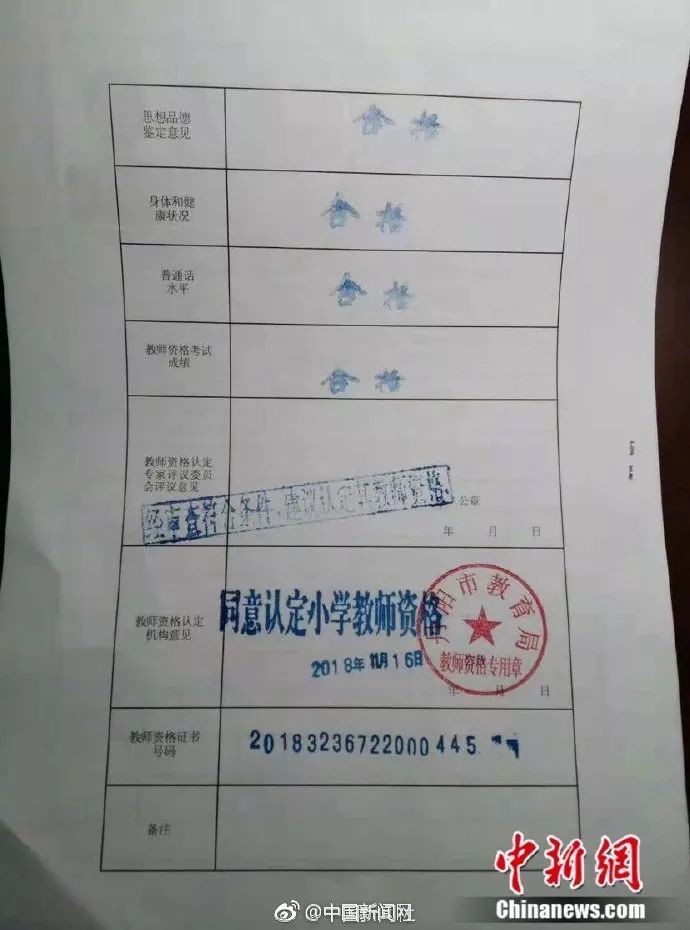 思想品德
鉴定意见
合格
身体和健
康状况
合格
普通话
水平
合格
教师资格考试
成绩
合格
教师资格认定
专家评议委员
会评议意见
经审查符合条件，建议认定其教师资格。
公章
年 月 日
教师资格认定
机构意见
同意认定小学教师资格
2018年11月16日
阳市教育局
教师资格专用章
年 月 日
教师资格证书
号码
20183236722000445
备注
@中国新闻网
中新网
Chinanews.com